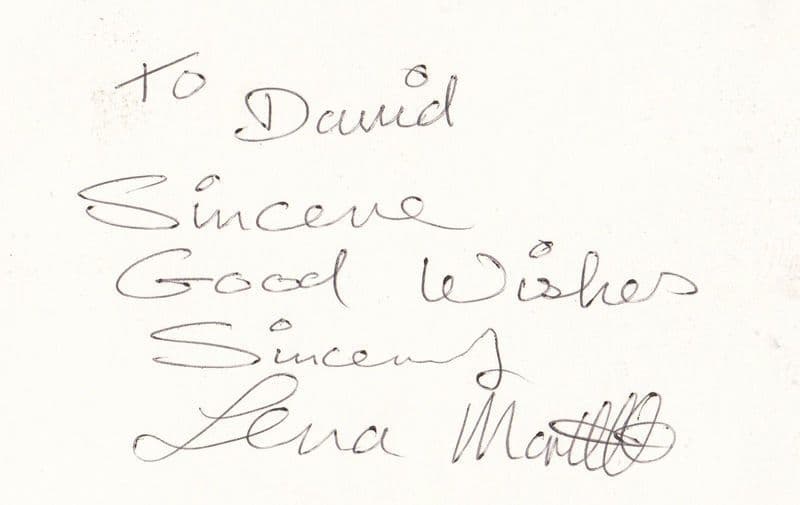 To David
Sincere
Good Wishes
Sincerely
Lena